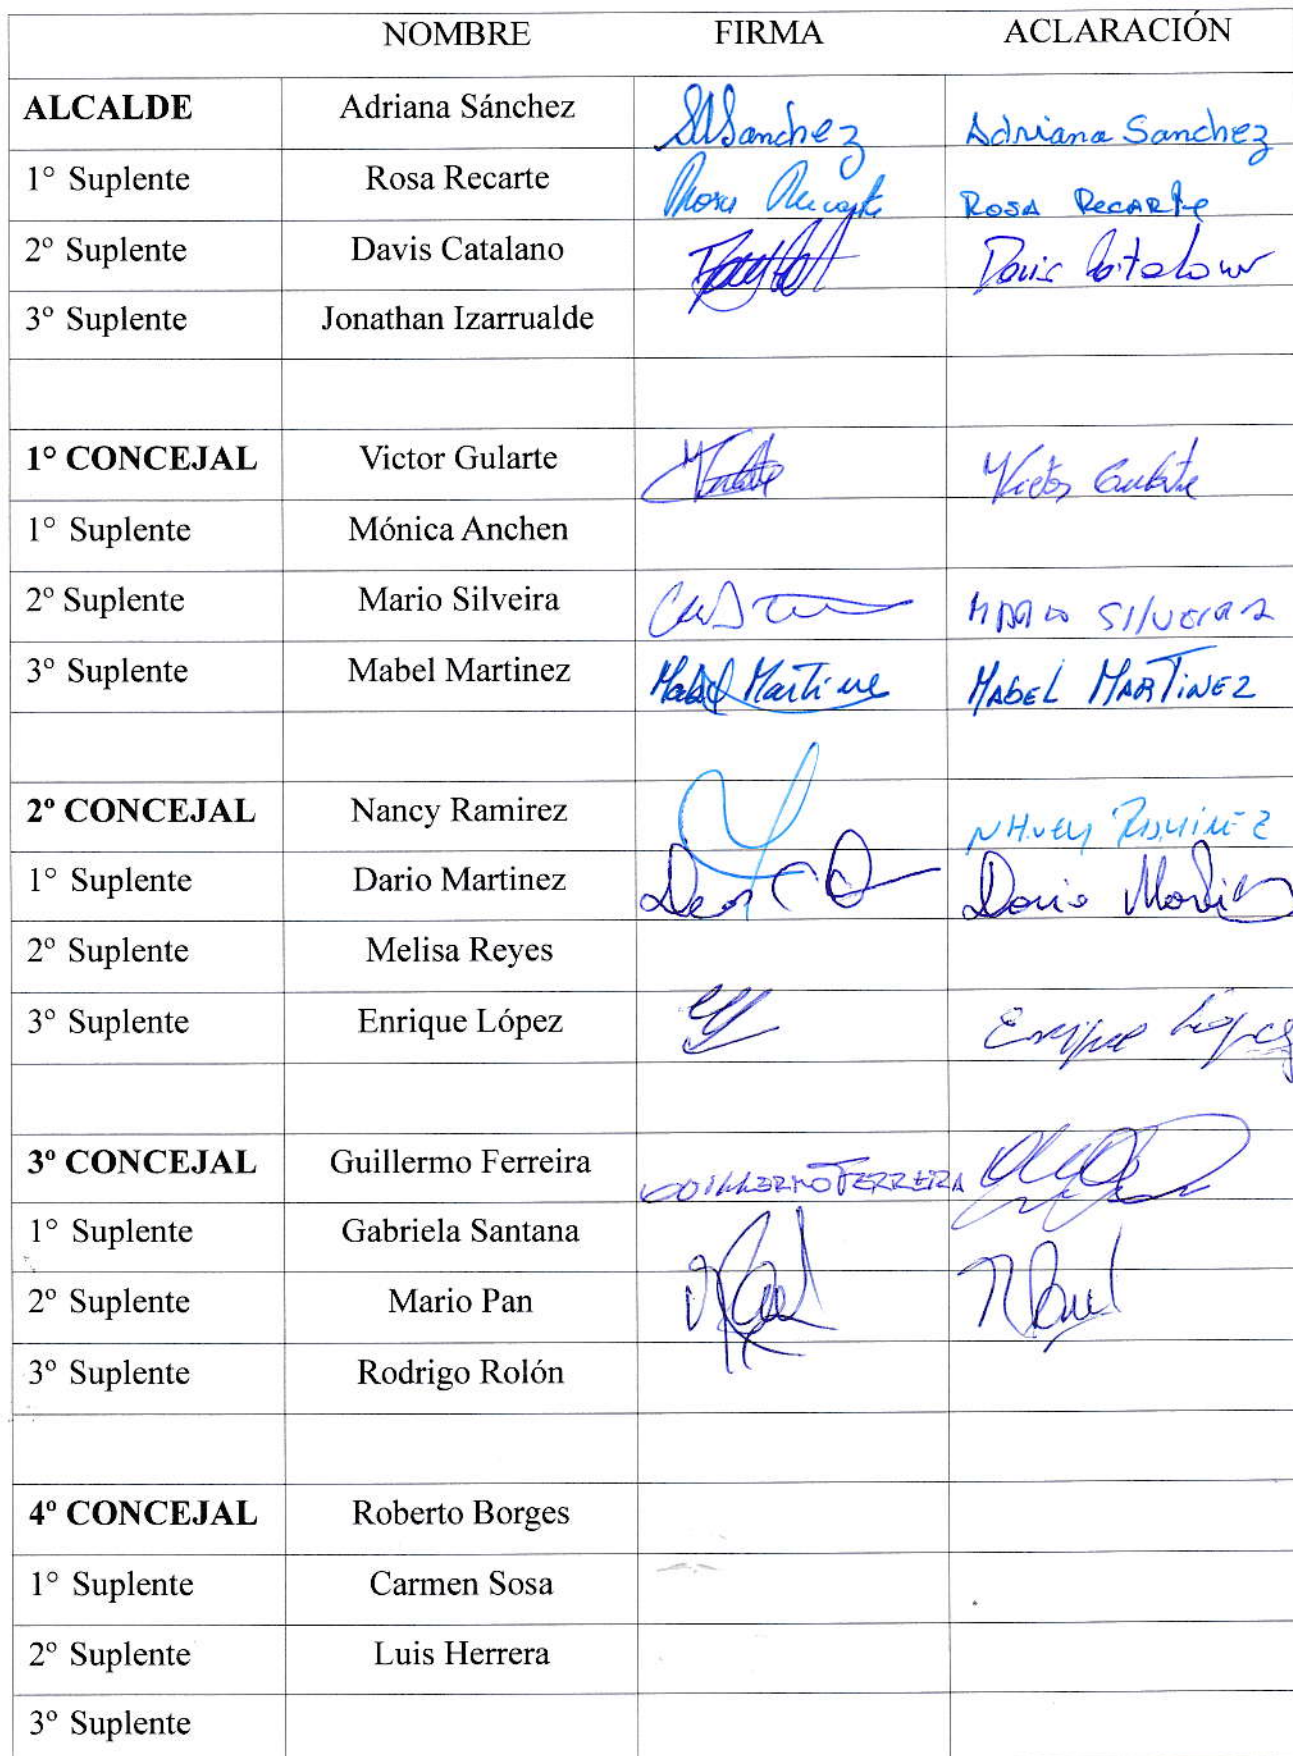 NOMBRE FIRMA ACLARACIÓN
ALCALDE Adriana Sánchez Sanchez Adriana Sanchez
1° Suplente Rosa Recarte Rosa Recarte ROSA RECARTE
2º Suplente Davis Catalano Davis Catalano
3º Suplente Jonathan Izarrualde
1° CONCEJAL Victor Gularte Victor Gularte
1° Suplente Mónica Anchen
2º Suplente Mario Silveira MARIO SILVEIRA
3º Suplente Mabel Martinez Mabel Martinez MABEL MARTINEZ
2º CONCEJAL Nancy Ramirez NANCY RAMIREZ
1° Suplente Dario Martinez Dario Martinez
2º Suplente Melisa Reyes
3º Suplente Enrique López Enrique López
3º CONCEJAL Guillermo Ferreira GUILLERMO FERREIRA
1° Suplente Gabriela Santana
2º Suplente Mario Pan
3º Suplente Rodrigo Rolón
4º CONCEJAL Roberto Borges
1° Suplente Carmen Sosa
2º Suplente Luis Herrera
3º Suplente